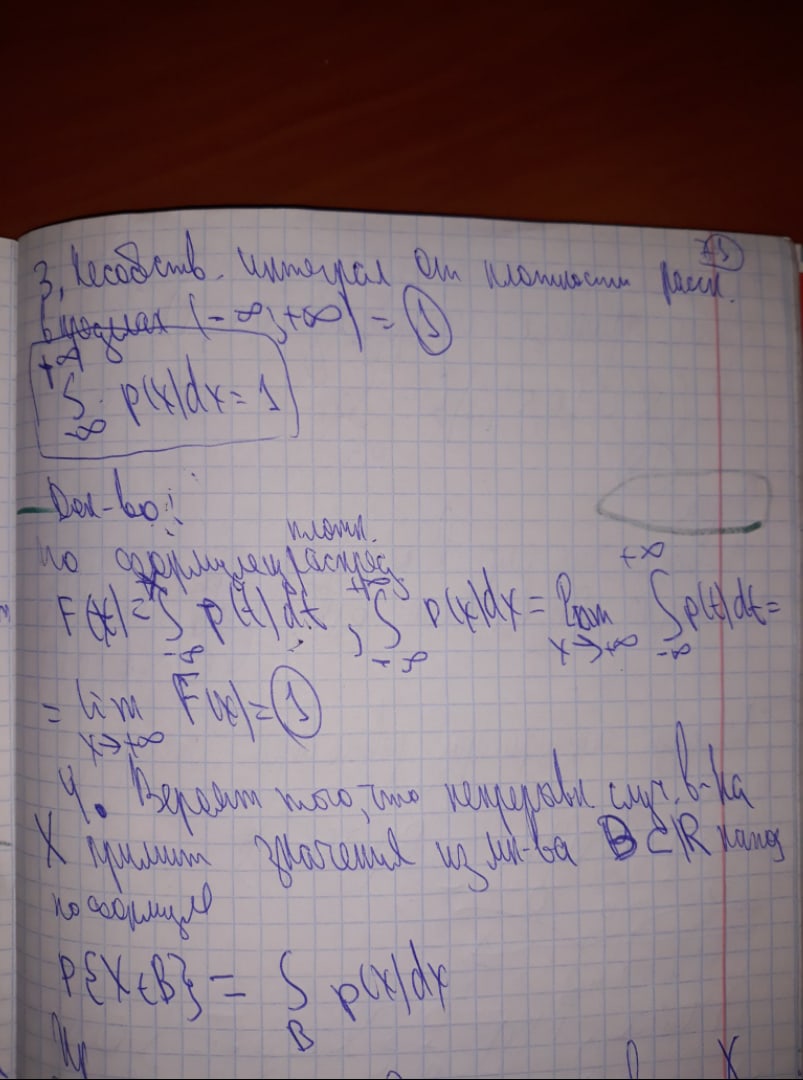 3. Несобств. интеграл от плотности расп.
в пределах (-∞;+∞) = 1
+∞
∫ p(x)dx = 1
-∞
Док-во:
плотн.
По формуле распред
F(x) = ∫ p(t)dt, ∫ p(x)dx = lim ∫ p(t)dt =
-∞ -∞ x→+∞ -∞
= lim F(x) = 1
x→+∞
4. Вероят того, что непрерывн случ. в-на
X примит значения из мн-ва B⊂R наход
по формуле
P{X∈B} = ∫ p(x)dx
B